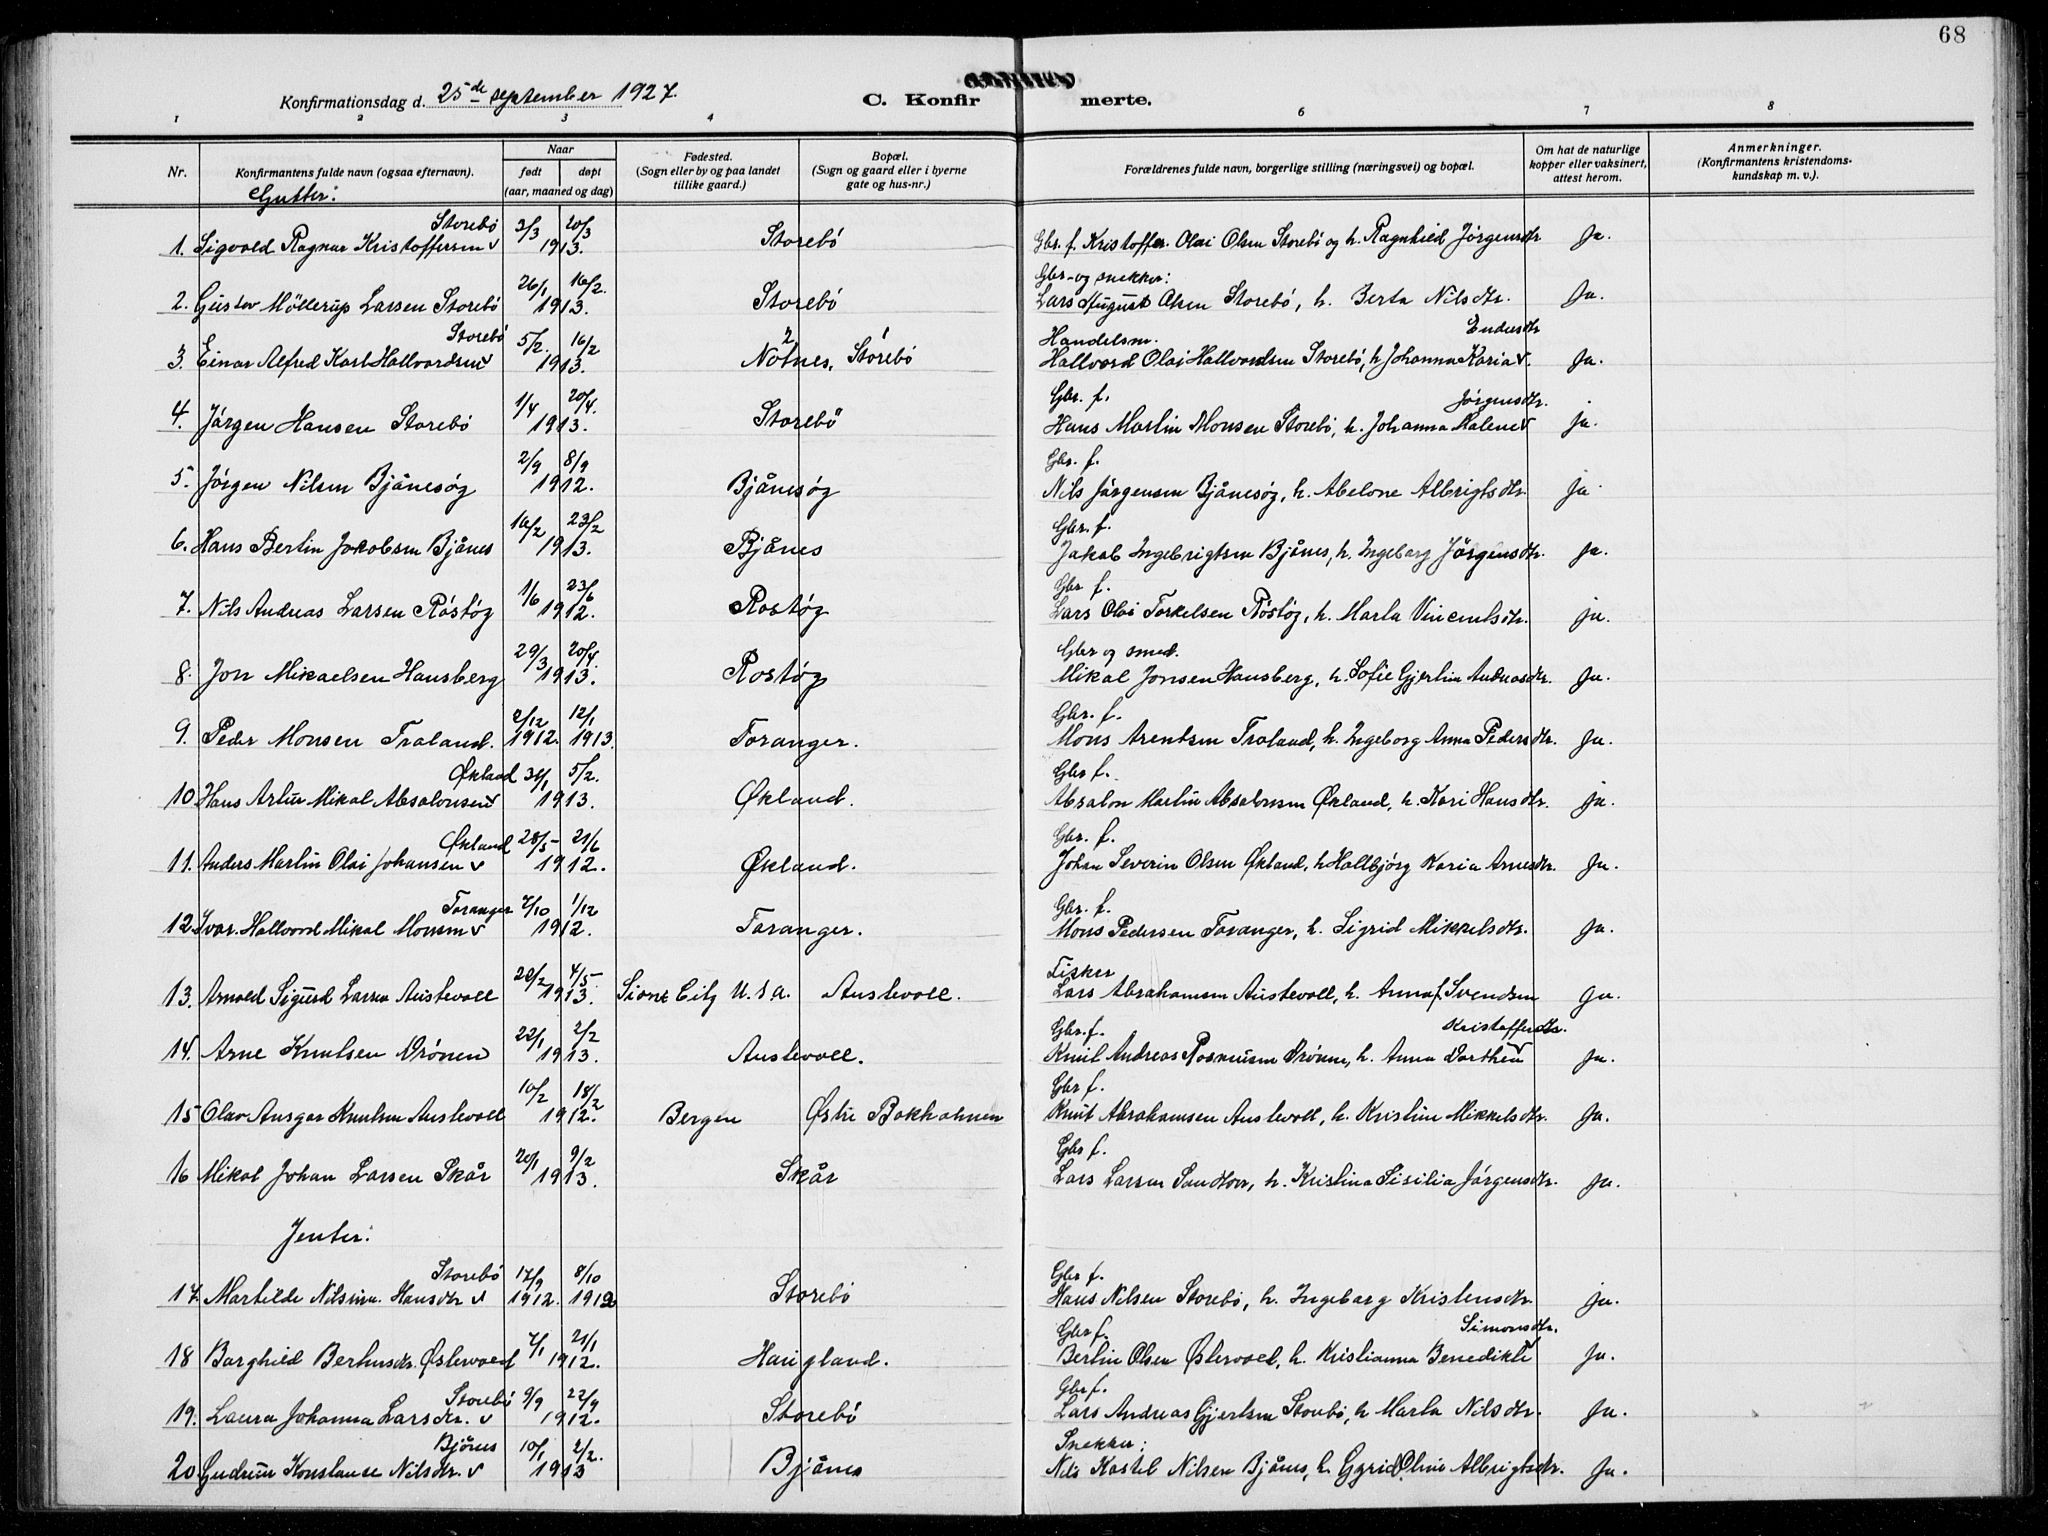 68
Konfirmationsdag d. 25de september 1927.
C. Konfirmerte.
1 2 3 4 6 7 8
Nr.
Konfirmantens fulde navn (ogsaa efternavn).
Naar
født døpt
(aar, maaned og dag)
Fødested.
(Sogn eller by og paa landet
tillike gaard.)
Bopæl.
(Sogn og gaard eller i byerne
gate og hus-nr.)
Forældrenes fulde navn, borgerlige stilling (næringsvei) og bopæl.
Om hat de naturlige
kopper eller vaksinert,
attest herom.
Anmerkninger.
(Konfirmantens kristendoms-
kundskap m. v.).
Gutter:
Storebö 3/3 20/3
1. Sigvald Ragnar Kristoffersen v 1913. Storebö Gbr. f. Kristoffer Olai Olsen Storebö og h. Ragnhild Jörgensdtr. Ja.
26/1 16/2. Gbr- og snekker:
2. Gustav Möllerup Larsen Storebö 1913. Storebö Lars August Olsen Storebö, h. Berta Nilsdtr. Ja.
Storebö 5/2. 16/2 Handelsm. Endresdtr
3. Einar Alfred Karl Hallvardsen v 1913. Notnes, Storebö Hallvard Olai Hallvardsen Storebö, h. Johanna Karia v. Ja.
1/4 20/4. Gbr. f. Jörgensdtr.
4. Jörgen Hansen Storebö 1913. Storebö Hans Martin Monsen Storebö, h. Johanna Malene v ja.
2/9 8/9 Gbr. f.
5. Jörgen Nilsen Bjånesøy 1912. Bjånesøy Nils Jörgensen Bjånesøy, h. Abelone Albrigtsdtr. ja
16/2 23/2 Gbr. f.
6. Hans Bertin Jakobsen Bjånes 1913. Bjånes Jakob Ingebrigtsen Bjånes, h. Ingeborg Jörgensdtr. ja.
1/6 23/6 Gbr f.
7. Nils Andreas Larsen Röstøy 1912. Rostøy Lars Olai Torkelsen Röstøy, h. Marta Vincentsdtr. ja.
29/3 20/4. Gbr og smed.
8. Jon Mikaelsen Hansberg 1913. Rostøy Mikal Jonsen Hansberg, h. Sofie Gjertine Andreasdtr. Ja.
2/12 12/1 Gbr. f.
9. Peder Monsen Traland. 1912. 1913. Toranger. Mons Arentsen Traland, h. Ingeborg Anna Pedersdtr. Ja.
Økland 31/1 5/2. Gbr f.
10. Hans Artur Mikal Absalonsen v 1913. Økland. Absalon Martin Absalonsen Økland, h. Kari Hansdtr. ja.
Økland 28/5- 21/6 Gbr. f.
11. Anders Martin Olai Johansen v 1912. Økland. Johan Severin Olsen Økland, h. Hallbjörg Karia Arnesdtr. Ja.
Toranger 7/10 1/12 Gbr. f.
12. Ivar Hallvard Mikal Monsen v 1912. Toranger. Mons Pedersen Toranger, h. Sigrid Mikkelsdtr. Ja.
4/5- Fisker
13. Arnold Sigurd Larsen Austevoll 1913. City U.S.A. Austevoll. Lars Abrahamsen Austevoll, h. Anna f. Svendsen Ja.
22/1 2/2 Gbr. f. Kristoffersdtr.
14. Arne Knutsen Drönen 1913. Austevoll. Knut Andreas Rasmusen Drönen, h. Anna Dorthea v Ja.
10/2 18/2 Gbr f.
15 Olav Ansgar Knutsen Austevoll 1912. Bergen Østre Bakholmen Knut Abrahamsen Austevoll, h. Kristine Mikkelsdtr. Ja.
20/1 9/2 Gbr f.
16 Mikal Johan Larsen Skår 1913. Skår Lars Larsen Sandtorv, h. Kristina Sisilia Jörgensdtr. Ja.
Jenter:
Storebö 17/9 8/10 Gbr f.
17. Martilde Nilsina Hansdtr v 1912. 1912 Storebö Hans Nilsen Storebö, h. Ingeborg Kristensdtr. ja.
7/1 21/1 Gbr f. Simonsdtr.
18 Borghild Bertinsdtr. Østervoll 1912. Haugland. Bertin Olsen Østervoll, h. Kristianna Benedikte v Ja.
Storebö 9/9 22/9 Gbr f.
19. Laura Johanna Larsdtr. v 1912. Storebö Lars Andreas Gjertsen Storebö, h. Marta Nilsdtr. Ja.
Bjånes 10/1 2/2. Snekker;
20. Gudrun Konstanse Nilsdtr. v 1913 Bjånes Nils Kastel Nilsen Bjånes, h. Gyrid Oline Albrigtsdtr. Ja.